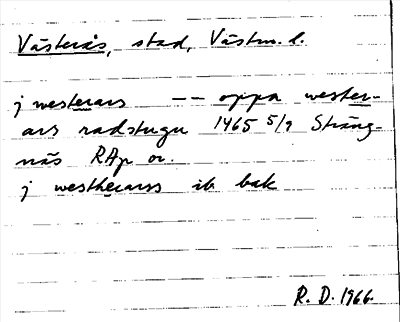 Västerås, stad, Västm. l.
j westerars -- oppa wester-
ars radstugu 1465 5/9 Sträng-
näs RAp or.
j westherarss ib bak
R. D. 1966.